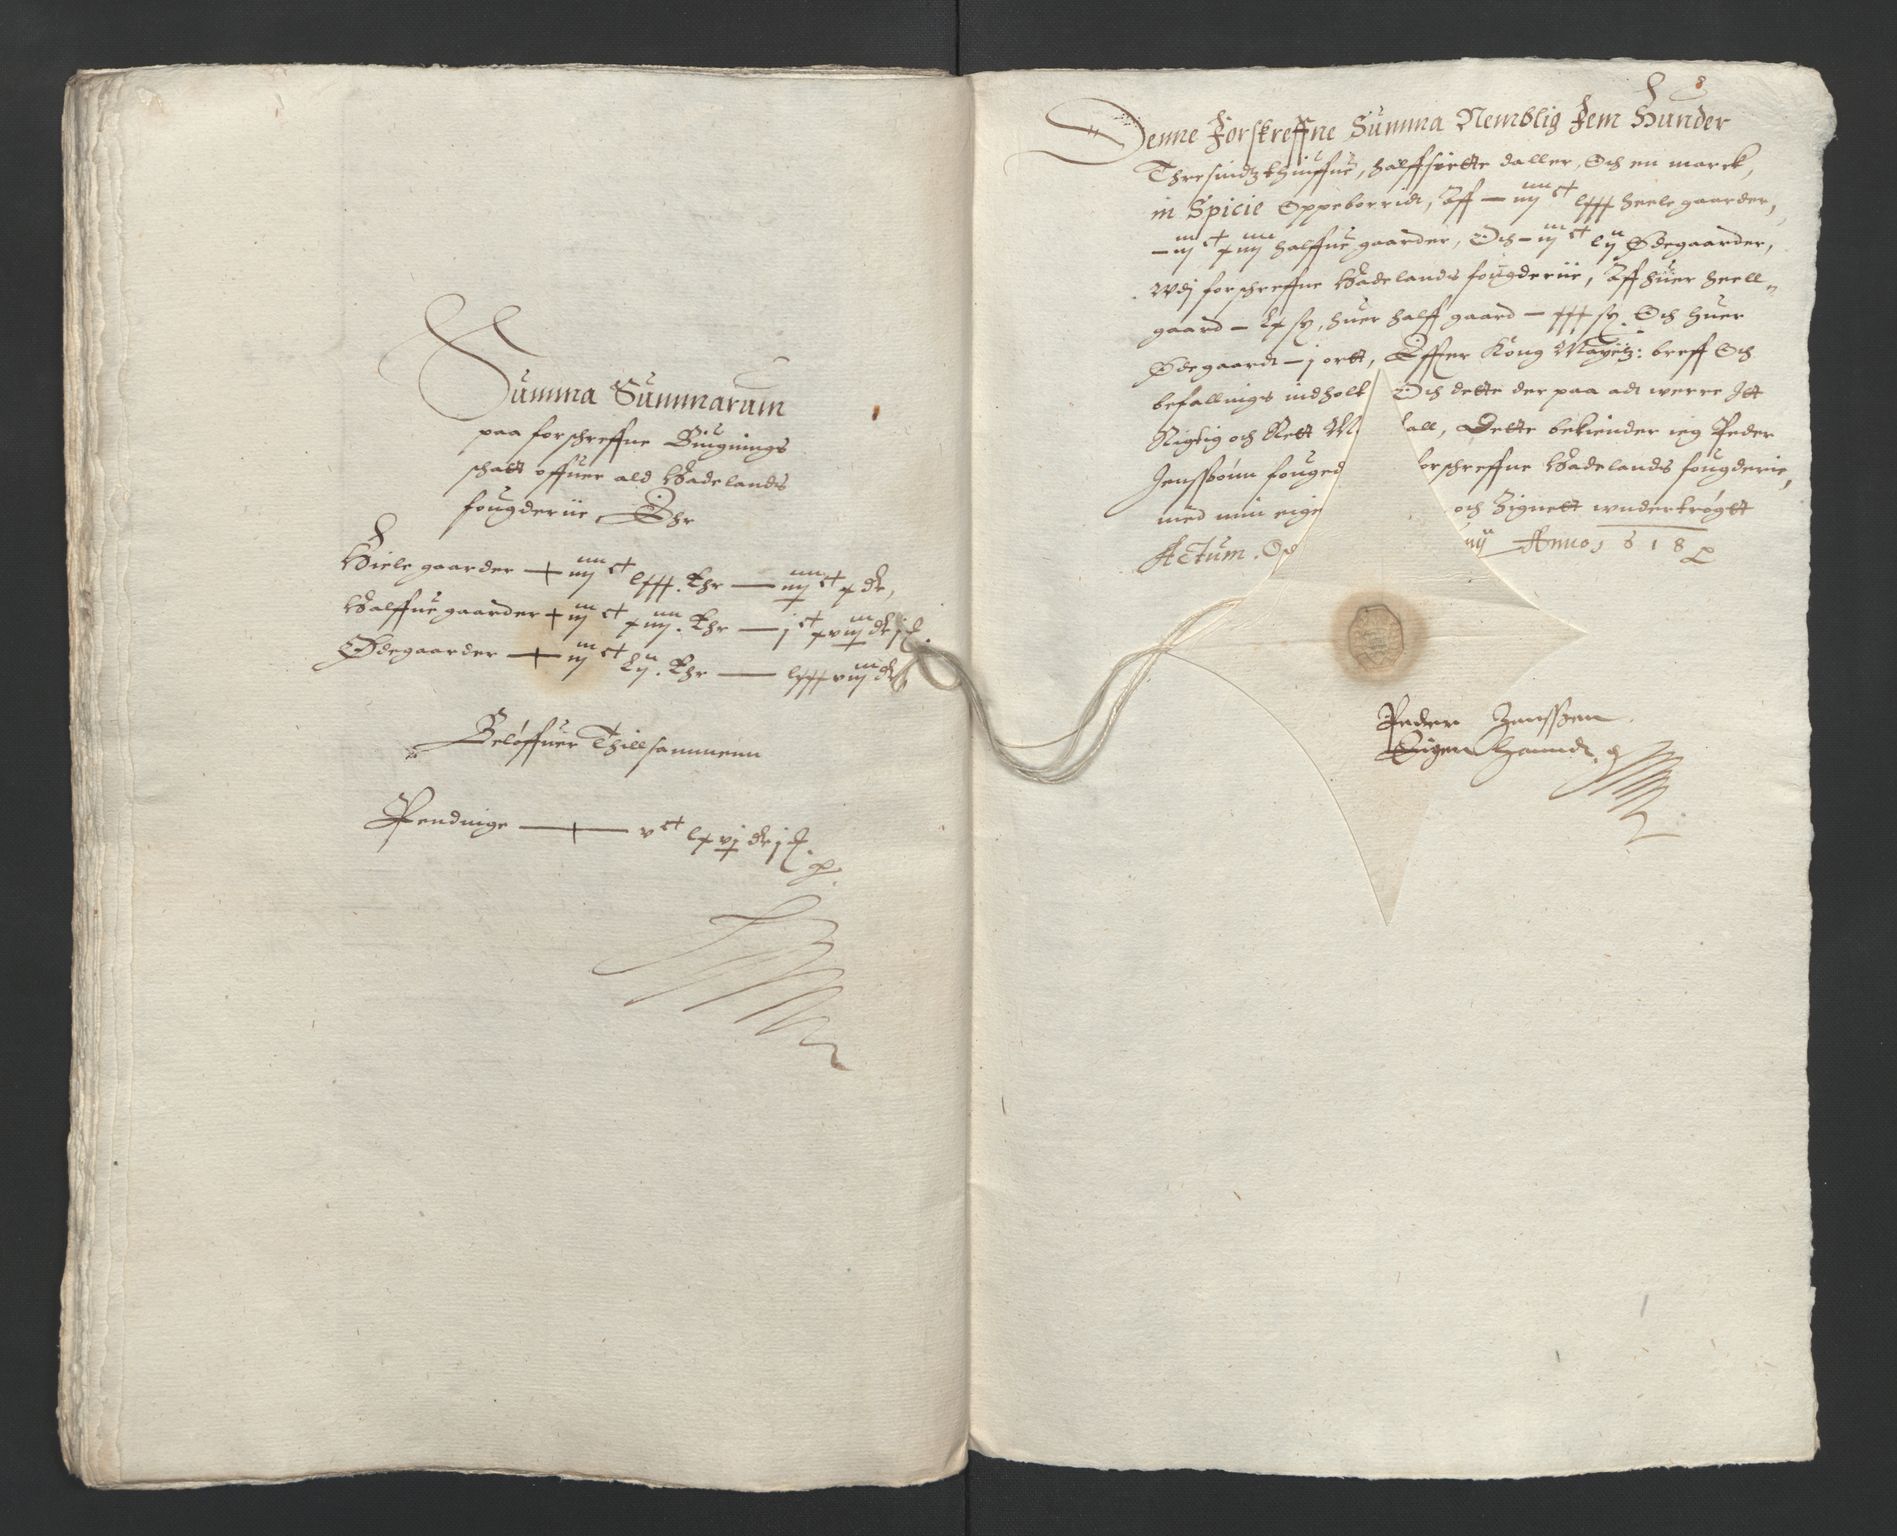 Summa Summarum
paa forschreffne Bugnings
schatt offuer ald Hadelands
fougderiie, Ehr
Hiele gaarder — iiijct lxxx. Ehr — iiijct x dr,
Halffue gaarder — iijct xiiij. Ehr — jct xviij dr j ℔.
Ødegaarder — iijct lij. Ehr — lxxxviij dr
Beløffuer Thillsammenn
Pendinge — vct lxvj dr j ℔.
Denne Forskreffne Summa Nemblig Fem Hunder
Thresindzthiuffue, halffsiette daller, Och en marck,
in Spicie Oppeborridt, Aff — iiijct lxxx heele gaarder,
— iijct xiiij halffue gaarder, Och — iijct lij Ødegaarder,
Wdj forschreffne Hadelands fougderiie, Aff huer heell
gaard — lx sz, huer halff gaard — xxx sz. Och huer
Ødegaardt — j ortt, Effter Kong Mayttz: breff Och
befallings indholt Och dette der paa adt werre Itt
Rigtig och Rett M all, Dette bekiender ieg Peder
Jenssønn fouged forschreffne Hadelands fougderie,
med min eige och Zignett wndertrøgtt
Actum. Op ij Anno 1618
Peder Jensszen
Eigen Handt